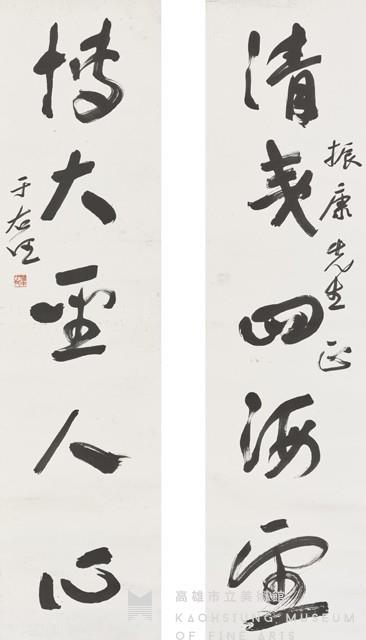 清夷四海雲
振康先生正
博大聖人心
于右任
高雄市立美術館
KAOHSIUNG MUSEUM
OF FINE ARTS